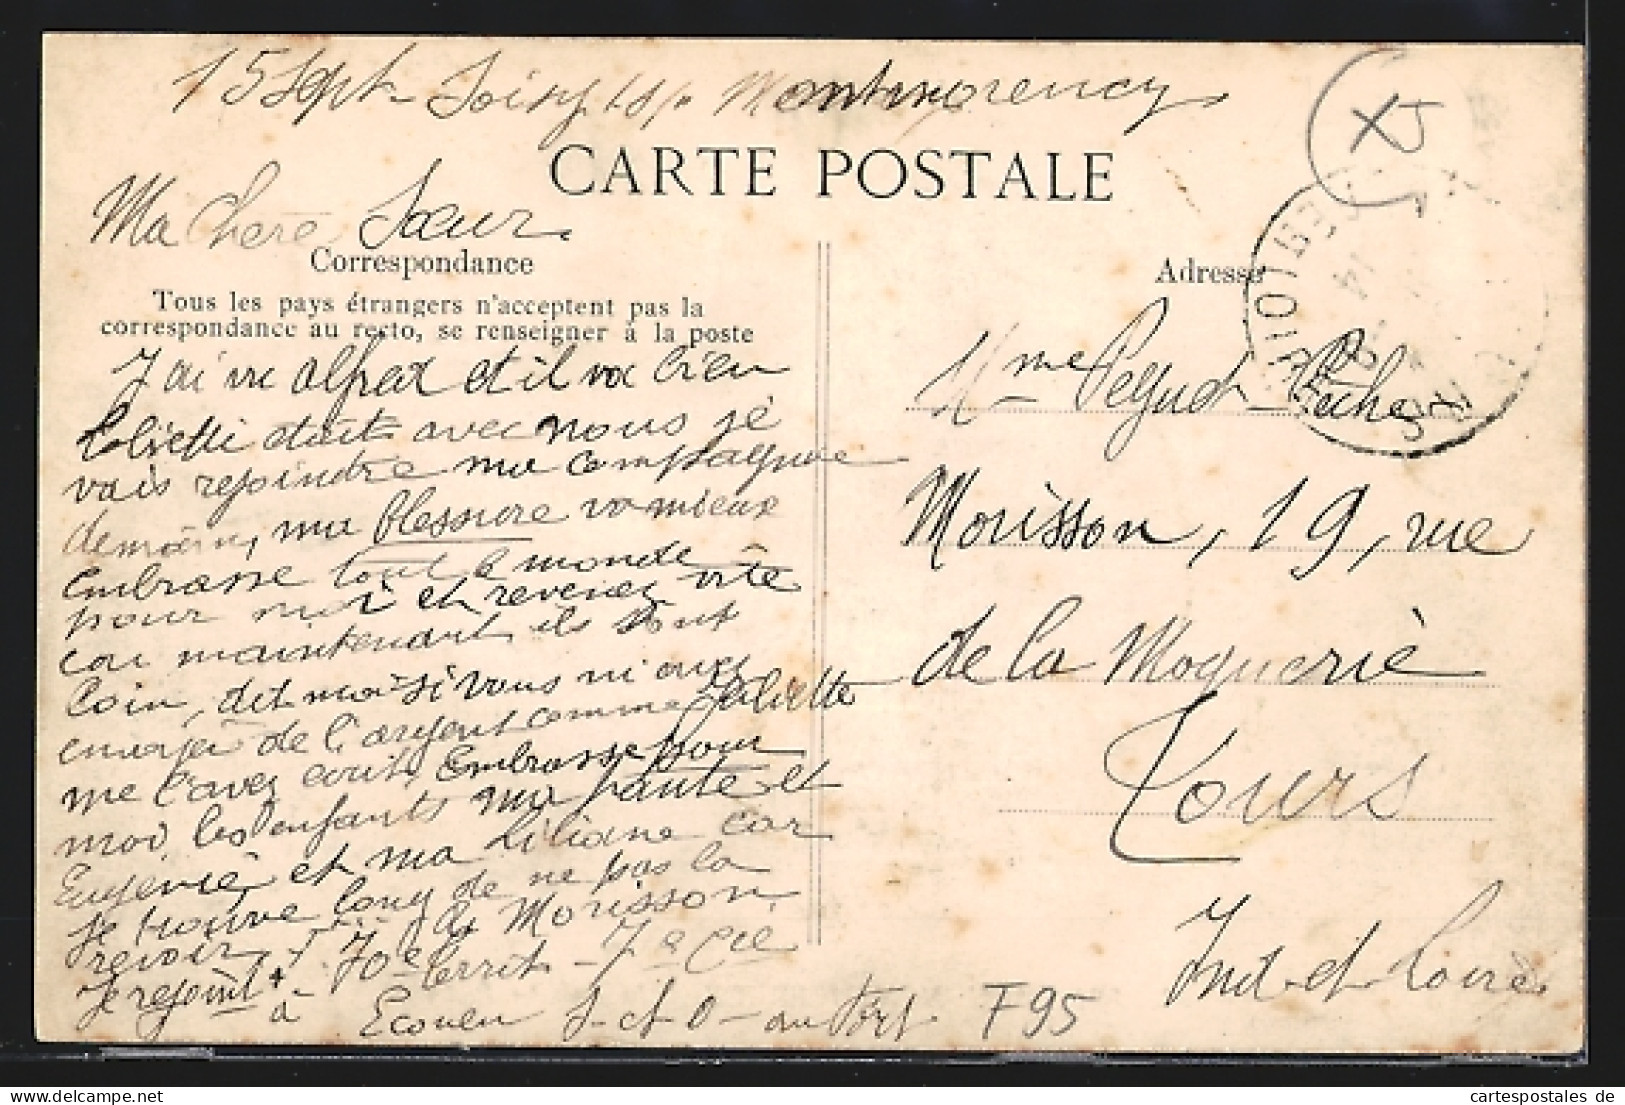 15 Sept Soisy s/s Montmorency
CARTE POSTALE
Ma chere Sœur
Correspondance
Tous les pays étrangers n'acceptent pas la
correspondance au recto, se renseigner à la poste
J'ai vu alfred et il va bien
était avec nous je
vais rejoindre ma compagnie
demain, ma blessure va mieux
Embrasse tout le monde
pour moi et revenez vite
car maintenant ils sont
loin, dit moi si vous m'avez
envoyer de l'argent comme Juliette
me l'avez ecrit, Embrasse pour
moi les enfants ma tante et
Eugenie et ma Liliane car
je trouve long de ne pas la
revoir, Morisson
Je rejoint 70e territ - 7e Cie
à Ecouen S-et-O- au Fort
F95
Adresse
Mme Peyrut
Morisson, 19, rue
de la Moquerie
Tours
Ind-et-Loire
cartespostales de